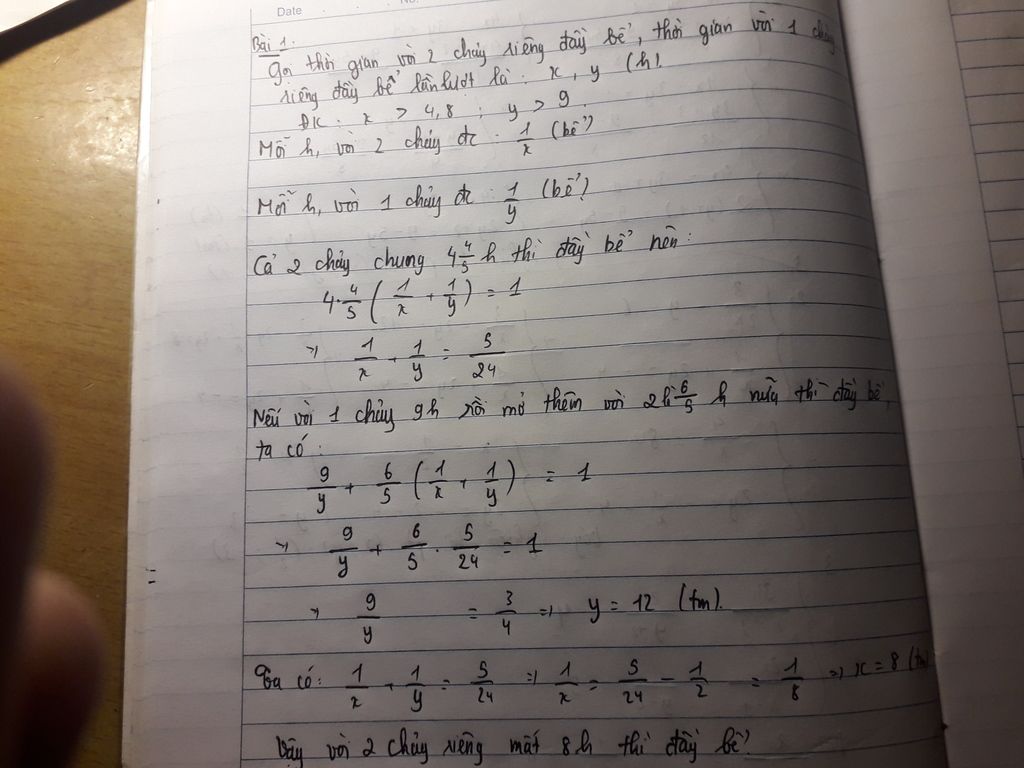 Date No.
Bài 1.
Gọi thời gian vòi 2 chảy riêng đầy bể, thời gian vòi 1 chảy
riêng đầy bể lần lượt là : x, y (h).
ĐK : x > 4,8 ; y > 9.
Mỗi h, vòi 2 chảy đc : 1/x (bể)
Mỗi h, vòi 1 chảy đc : 1/y (bể)
Cả 2 chảy chung 4 4/5 h thì đầy bể nên :
4·4/5 (1/x + 1/y) = 1
=> 1/x + 1/y = 5/24
Nếu vòi 1 chảy 9h rồi mở thêm vòi 2 h 6/5 h nữa thì đầy bể,
ta có :
9/y + 6/5 (1/x + 1/y) = 1
=> 9/y + 6/5 . 5/24 = 1
=> 9/y = 3/4 => y = 12 (tm).
Ta có : 1/x + 1/y = 5/24 => 1/x = 5/24 - 1/2 = 1/8 => x = 8 (tm)
Vậy vòi 2 chảy riêng mất 8h thì đầy bể.